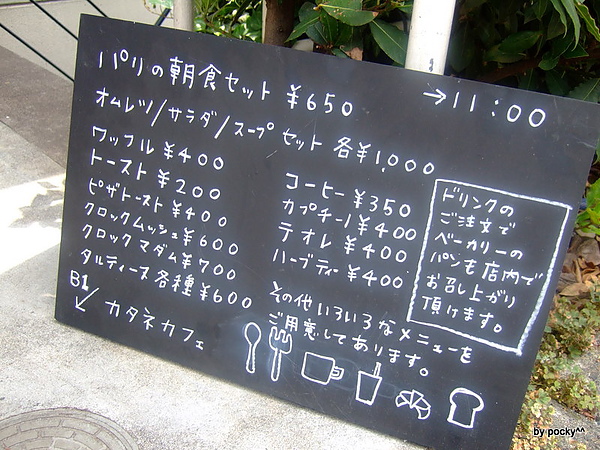 パリの朝食セット ¥650 →11:00
オムレツ/サラダ/スープ セット 各¥1,000
ワッフル ¥400
トースト ¥200
ピザトースト ¥400
クロックムッシュ ¥600
クロックマダム ¥700
タルティーヌ 各種 ¥600
コーヒー ¥350
カプチーノ ¥400
ラオレ ¥400
ハーブティー ¥400
ドリンクの
ご注文で
ベーカリーの
パンも店内で
お召し上がり
頂けます。
その他いろいろなメニューを
ご用意してあります。
B1
↙ カタネカフェ
by pocky^^